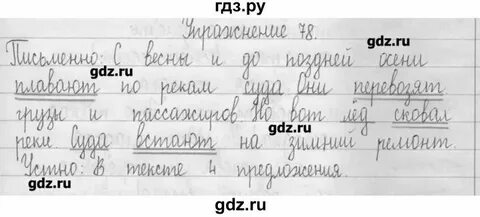 гдз.ру
Упражнение 78.
Письменно: С весны и до поздней осени
плавают по рекам суда Они перевозят
грузы и пассажиров Но вот лёд сковал
реки Суда встают на зимний ремонт.
Устно: В тексте 4 предложения.
gdz.ru
gdz.ru
gdz.ru
gdz.ru
gdz.ru
gdz.ru